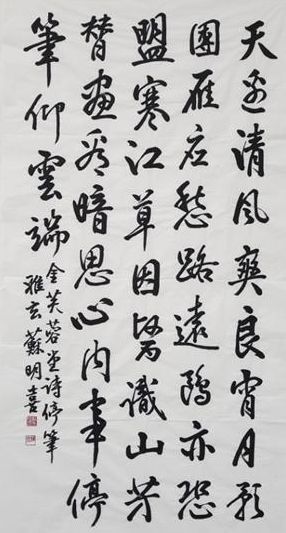 天邊清風爽良宵月影
團雁应愁路遠鷗亦恐
盟寒江草因賢識山芳
替畫看暗思心内事停
筆仰雲端
金芙蓉堂诗停筆
雅玄蘇明喜